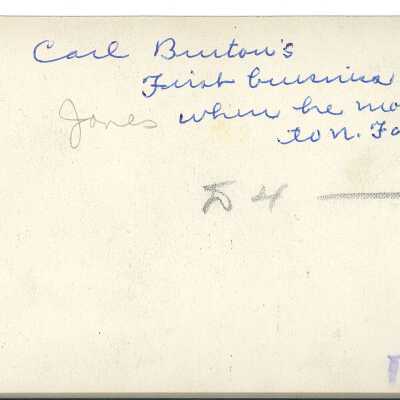 Carl Burton's
First business
Jones when he mo
to N. Fa
D 4